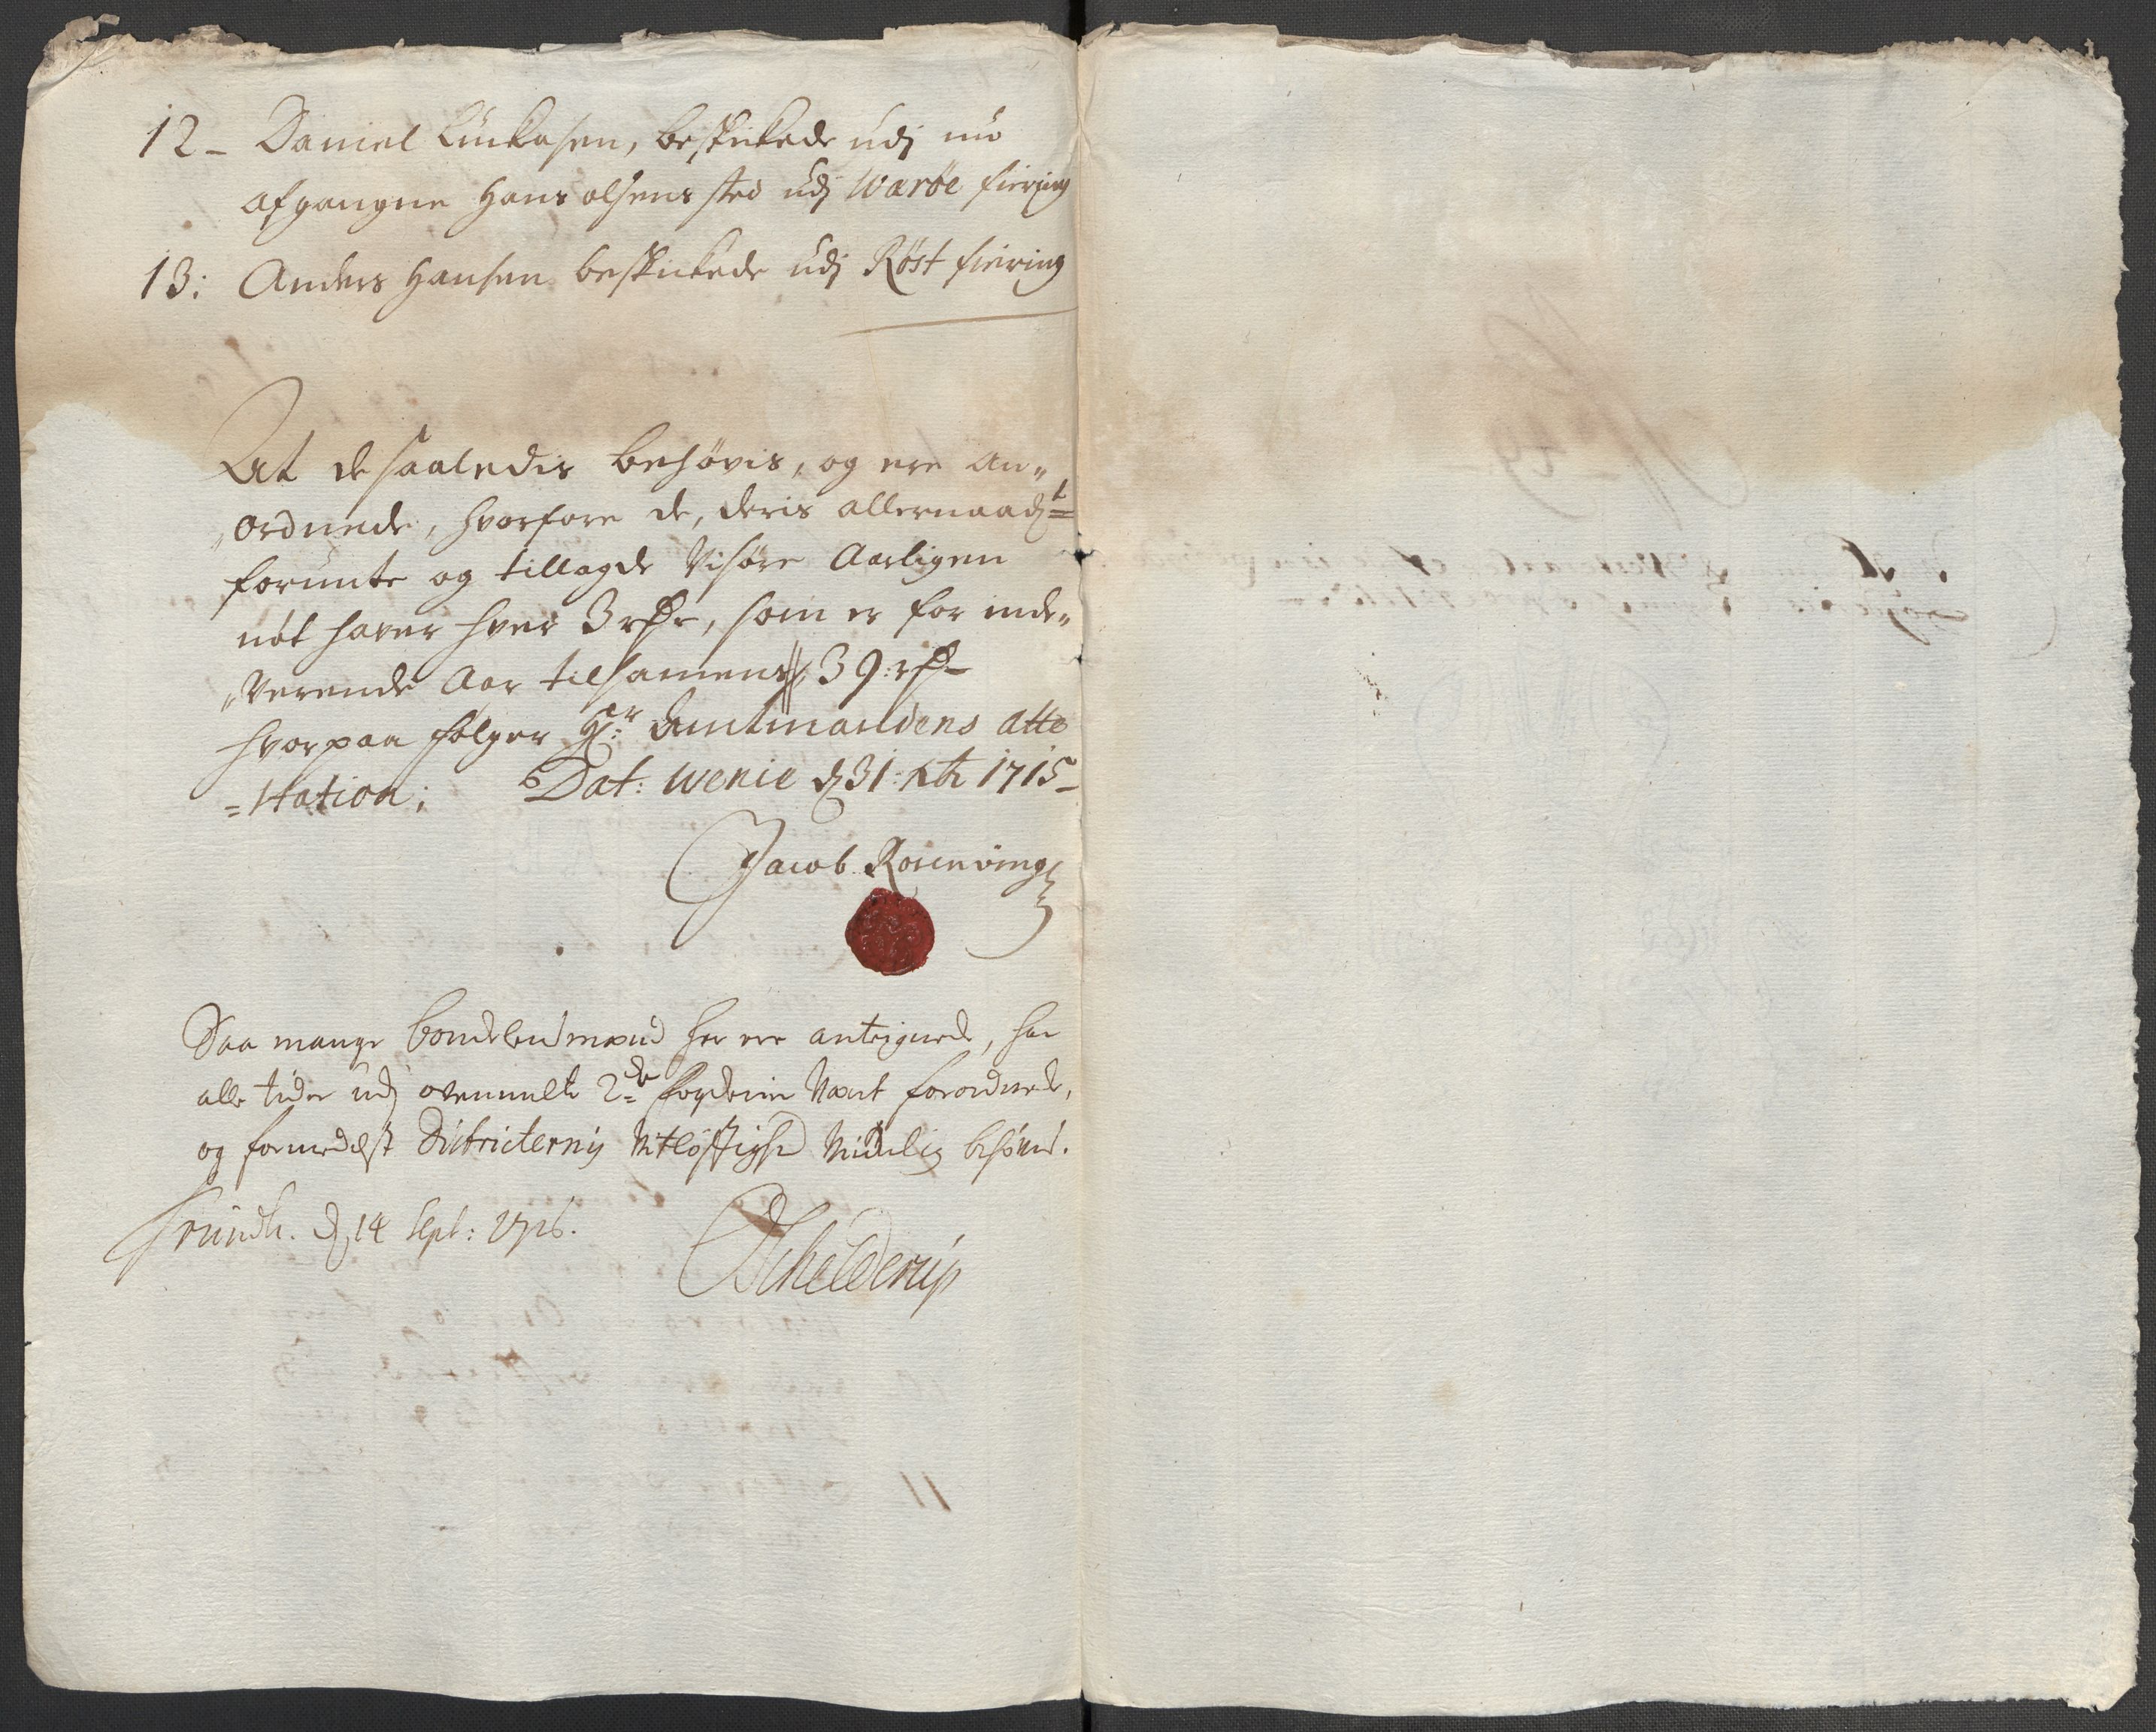 12 - Daniel Luckasen, beskickede udj nu
afgangne Hans olsens sted udj Warøe fiering
13: Anders Hansen beskickede udj Røst fiering
At de saaledis behøvis, og ere an„
„ordnede, hvorfore de, deris allernaad:t=
forunte og tillagde Visøre Aarligen
nöt haver hver 3 rdr, som er for inde„
„Verende Aar tilsamens // 39: rd -
hvorpaa følger Hr: Amtmandens atte
=station; Dat: Wenie d 31: Xbr 1715 -
Jacob Rosenvinge
Saa mange bondelensmænd her ere antegnede, har
alle tider udj ovenmelte 2de fogderier Været forordnede,
og formedelst Districternis Vitløftighed behøves.
Trundh. d. 14 Sept: 1716.
Schelderup